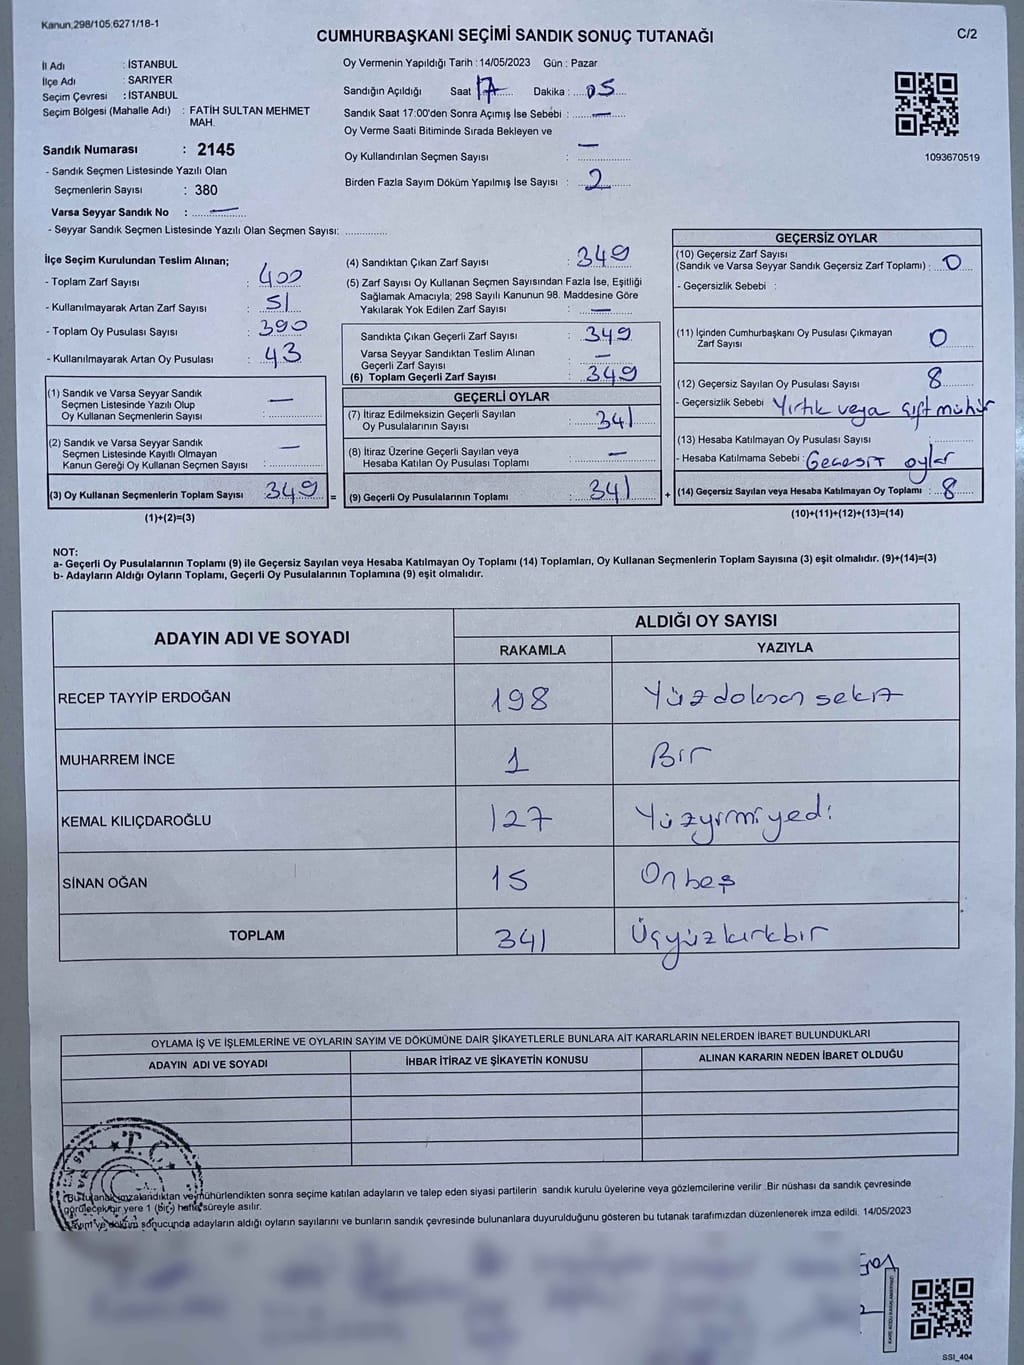 Kanun.298/105.6271/18-1
CUMHURBAŞKANI SEÇİMİ SANDIK SONUÇ TUTANAĞI
C/2
İl Adı : İSTANBUL
İlçe Adı : SARIYER
Seçim Çevresi : İSTANBUL
Seçim Bölgesi (Mahalle Adı) : FATİH SULTAN MEHMET
MAH.
Sandık Numarası : 2145
- Sandık Seçmen Listesinde Yazılı Olan
Seçmenlerin Sayısı : 380
Varsa Seyyar Sandık No : —
- Seyyar Sandık Seçmen Listesinde Yazılı Olan Seçmen Sayısı: ..............
Oy Vermenin Yapıldığı Tarih : 14/05/2023 Gün : Pazar
Sandığın Açıldığı Saat 17 Dakika : 05
Sandık Saat 17:00'den Sonra Açımış İse Sebebi : —
Oy Verme Saati Bitiminde Sırada Bekleyen ve
Oy Kullandırılan Seçmen Sayısı : —
Birden Fazla Sayım Döküm Yapılmış İse Sayısı : 2
1093670519
İlçe Seçim Kurulundan Teslim Alınan;
- Toplam Zarf Sayısı : 400
- Kullanılmayarak Artan Zarf Sayısı : 51
- Toplam Oy Pusulası Sayısı : 390
- Kullanılmayarak Artan Oy Pusulası : 43
(1) Sandık ve Varsa Seyyar Sandık
Seçmen Listesinde Yazılı Olup
Oy Kullanan Seçmenlerin Sayısı : —
(2) Sandık ve Varsa Seyyar Sandık
Seçmen Listesinde Kayıtlı Olmayan
Kanun Gereği Oy Kullanan Seçmen Sayısı : —
(3) Oy Kullanan Seçmenlerin Toplam Sayısı : 349 =
(1)+(2)=(3)
(4) Sandıktan Çıkan Zarf Sayısı : 349
(5) Zarf Sayısı Oy Kullanan Seçmen Sayısından Fazla İse, Eşitliği
Sağlamak Amacıyla; 298 Sayılı Kanunun 98. Maddesine Göre
Yakılarak Yok Edilen Zarf Sayısı : —
Sandıkta Çıkan Geçerli Zarf Sayısı : 349
Varsa Seyyar Sandıktan Teslim Alınan
Geçerli Zarf Sayısı : —
(6) Toplam Geçerli Zarf Sayısı : 349
GEÇERLİ OYLAR
(7) İtiraz Edilmeksizin Geçerli Sayılan
Oy Pusulalarının Sayısı : 341
(8) İtiraz Üzerine Geçerli Sayılan veya
Hesaba Katılan Oy Pusulası Toplamı : —
(9) Geçerli Oy Pusulalarının Toplamı : 341 +
GEÇERSİZ OYLAR
(10) Geçersiz Zarf Sayısı
(Sandık ve Varsa Seyyar Sandık Geçersiz Zarf Toplamı) : 0
- Geçersizlik Sebebi :
(11) İçinden Cumhurbaşkanı Oy Pusulası Çıkmayan
Zarf Sayısı 0
(12) Geçersiz Sayılan Oy Pusulası Sayısı 8
- Geçersizlik Sebebi Yırtık veya çift mühür
(13) Hesaba Katılmayan Oy Pusulası Sayısı :
- Hesaba Katılmama Sebebi : Gecesiz oylar
(14) Geçersiz Sayılan veya Hesaba Katılmayan Oy Toplamı : 8
(10)+(11)+(12)+(13)=(14)
NOT:
a- Geçerli Oy Pusulalarının Toplamı (9) ile Geçersiz Sayılan veya Hesaba Katılmayan Oy Toplamı (14) Toplamları, Oy Kullanan Seçmenlerin Toplam Sayısına (3) eşit olmalıdır. (9)+(14)=(3)
b- Adayların Aldığı Oyların Toplamı, Geçerli Oy Pusulalarının Toplamına (9) eşit olmalıdır.
ADAYIN ADI VE SOYADI
ALDIĞI OY SAYISI
RAKAMLA YAZIYLA
RECEP TAYYİP ERDOĞAN 198 Yüzdoksan sekiz
MUHARREM İNCE 1 Bir
KEMAL KILIÇDAROĞLU 127 Yüzyirmiyedi
SİNAN OĞAN 15 Onbeş
TOPLAM 341 Üçyüzkırkbir
OYLAMA İŞ VE İŞLEMLERİNE VE OYLARIN SAYIM VE DÖKÜMÜNE DAİR ŞİKAYETLERLE BUNLARA AİT KARARLARIN NELERDEN İBARET BULUNDUKLARI
ADAYIN ADI VE SOYADI İHBAR İTİRAZ VE ŞİKAYETİN KONUSU ALINAN KARARIN NEDEN İBARET OLDUĞU
T.C.
Bu tutanak imzalandıktan ve mühürlendikten sonra seçime katılan adayların ve talep eden siyasi partilerin sandık kurulu üyelerine veya gözlemcilerine verilir .Bir nüshası da sandık çevresinde
görülecek bir yere 1 (Bir) hafta süreyle asılır.
Sayım ve döküm sonucunda adayların aldığı oyların sayılarını ve bunların sandık çevresinde bulunanlara duyurulduğunu gösteren bu tutanak tarafımızdan düzenlenerek imza edildi. 14/05/2023
SSI_404